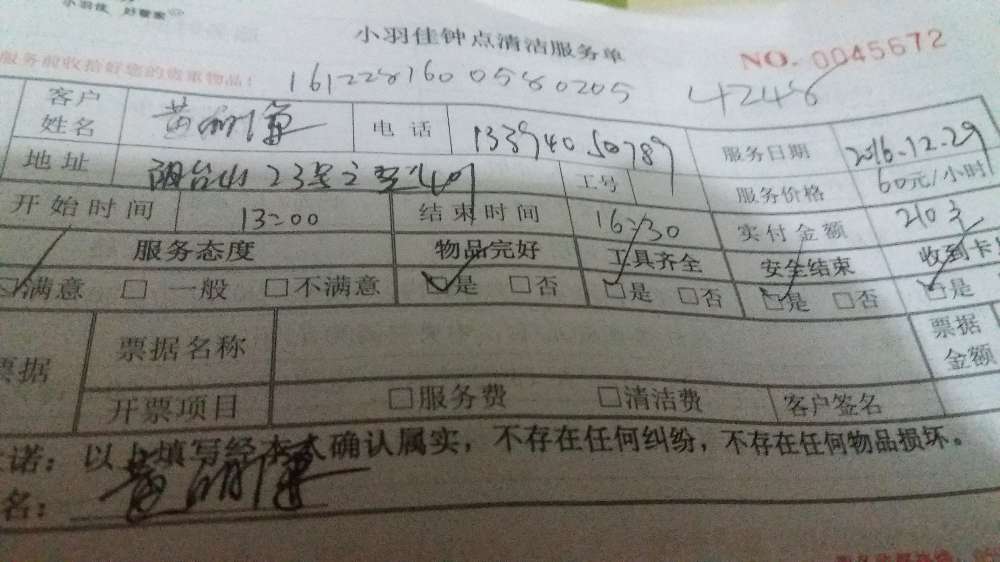 小羽佳 好管家
小羽佳钟点清洁服务单
NO. 0045672
服务前收拾好您的贵重物品！ 1612281600580205 4248
客户姓名 黄 电话 13394050789 服务日期 2016.12.29
地址 阳台山23号之 工号 服务价格 60元/小时
开始时间 13:00 结束时间 16:30 实付金额 210
服务态度 物品完好 工具齐全 安全结束 收到卡
满意 □ 一般 □不满意 □是 □否 □是 □否 □是 □否 □是
票据 票据名称 票据金额
开票项目 □服务费 □清洁费 客户签名
诺：以上填写经本人确认属实，不存在任何纠纷，不存在任何物品损坏。
名：黄